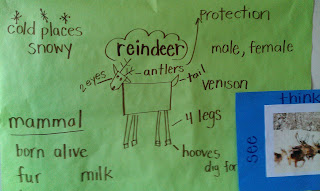 cold places
snowy
reindeer
protection
male, female
2 eyes
antlers
tail
venison
4 legs
hooves
dig for
mammal
born alive
fur
milk
think
see